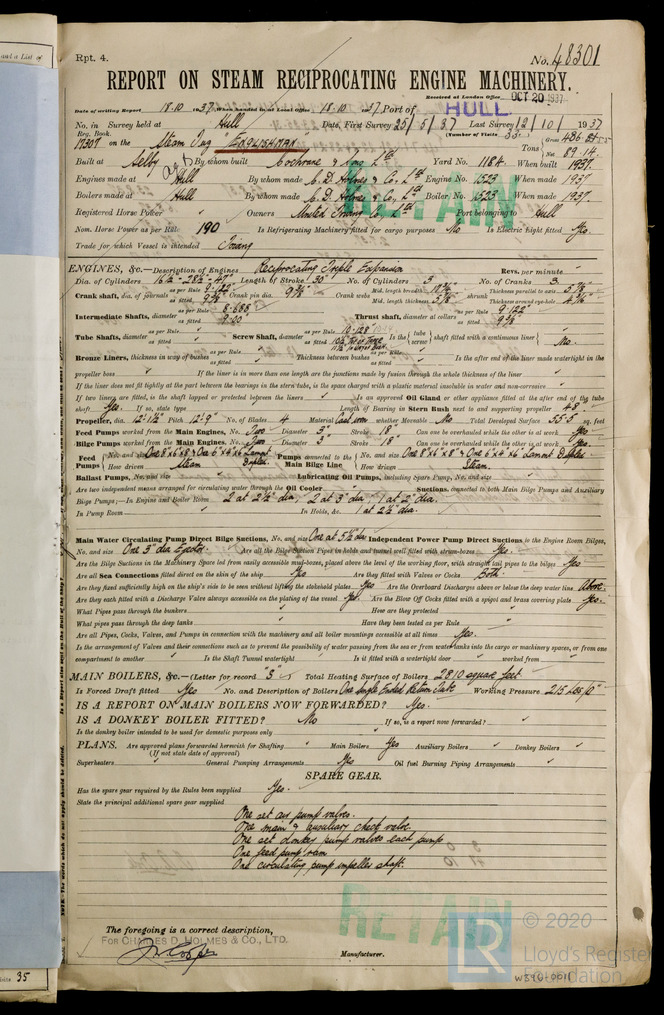 and a List of
Rpt. 4.
No. 48301
REPORT ON STEAM RECIPROCATING ENGINE MACHINERY.
Received at London Office OCT 20 1937
Date of writing Report 18.10 1937 When handed in at Local Office 18.10 1937 Port of HULL
No. in Survey held at Hull Date, First Survey 25/5/37 Last Survey 12/10/1937
Reg. Book. (Number of Visits
on the Steam Tug Tons Gross
Net 89.14
Built at Selby By whom built Cochrane & Sons Ltd Yard No. 1184 When built 1937
Engines made at Hull By whom made C. D. Holmes & Co. Ltd Engine No. 1523 When made 1937
Boilers made at Hull By whom made C. D. Holmes & Co. Ltd Boiler No. 1523 When made 1937
Registered Horse Power Owners United Towing Co. Ltd Port belonging to Hull
Nom. Horse Power as per Rule 190 Is Refrigerating Machinery fitted for cargo purposes No Is Electric Light fitted Yes
Trade for which Vessel is intended Towing
RETAIN
ENGINES, &c.—Description of Engines Reciprocating Triple Expansion Revs. per minute
Dia. of Cylinders 16½"-28½"-47" Length of Stroke 30" No. of Cylinders 3 No. of Cranks 3
Crank shaft, dia. of journals as per Rule 9.122" as fitted 9⅜" Crank pin dia. 9⅜" Crank webs Mid. length breadth Mid. length thickness 5⅞" shrunk Thickness parallel to axis 5⅞" Thickness around eye-hole
Intermediate Shafts, diameter as per Rule 8.688 as fitted Thrust shaft, diameter at collars as per Rule 9.122" as fitted 9⅜"
Tube Shafts, diameter as per Rule as fitted Screw Shaft, diameter as per Rule 10.128" as fitted Is the tube screw shaft fitted with a continuous liner No.
Bronze Liners, thickness in way of bushes as per Rule as fitted Thickness between bushes as per Rule as fitted Is the after end of the liner made watertight in the
propeller boss If the liner is in more than one length are the junctions made by fusion through the whole thickness of the liner
If the liner does not fit tightly at the part between the bearings in the stern tube, is the space charged with a plastic material insoluble in water and non-corrosive
If two liners are fitted, is the shaft lapped or protected between the liners Is an approved Oil Gland or other appliance fitted at the after end of the tube
shaft Yes. If so, state type Length of Bearing in Stern Bush next to and supporting propeller 48"
Propeller, dia. 12'-1½" Pitch 12'-9" No. of Blades 4 Material Cast iron whether Moveable No Total Developed Surface 55.5 sq. feet
Feed Pumps worked from the Main Engines, No. Two Diameter 3" Stroke 18" Can one be overhauled while the other is at work Yes
Bilge Pumps worked from the Main Engines, No. Two Diameter 3" Stroke 18" Can one be overhauled while the other is at work Yes.
Feed Pumps No. and size One 8"x6"x8" One 6"x4"x6" Lamont Duplex How driven Steam Pumps connected to the Main Bilge Line No. and size One 8"x6"x8" & One 6"x4"x6" Lamont Duplex How driven Steam.
Ballast Pumps, No. and size Lubricating Oil Pumps, including Spare Pump, No. and size
Are two independent means arranged for circulating water through the Oil Cooler Suctions, connected to both Main Bilge Pumps and Auxiliary
Bilge Pumps;—In Engine and Boiler Room 2 at 2½" dia, 2 at 3" dia, 1 at 2" dia.
In Pump Room In Holds, &c. 1 at 2½" dia.
Main Water Circulating Pump Direct Bilge Suctions, No. and size One at 5½" dia Independent Power Pump Direct Suctions to the Engine Room Bilges,
No. and size One 3" dia Ejector. Are all the Bilge Suction Pipes in holds and tunnel well fitted with strum-boxes Yes.
Are the Bilge Suctions in the Machinery Space led from easily accessible mud-boxes, placed above the level of the working floor, with straight tail pipes to the bilges Yes
Are all Sea Connections fitted direct on the skin of the ship Yes Are they fitted with Valves or Cocks Both
Are they fixed sufficiently high on the ship's side to be seen without lifting the stokehold plates Yes Are the Overboard Discharges above or below the deep water line Above.
Are they each fitted with a Discharge Valve always accessible on the plating of the vessel Yes. Are the Blow Off Cocks fitted with a spigot and brass covering plate Yes.
What Pipes pass through the bunkers How are they protected
What pipes pass through the deep tanks Have they been tested as per Rule
Are all Pipes, Cocks, Valves, and Pumps in connection with the machinery and all boiler mountings accessible at all times Yes.
Is the arrangement of Valves and their connections such as to prevent the possibility of water passing from the sea or from water tanks into the cargo or machinery spaces, or from one
compartment to another Is the Shaft Tunnel watertight Is it fitted with a watertight door worked from
MAIN BOILERS, &c.—(Letter for record "S") Total Heating Surface of Boilers 2810 square feet
Is Forced Draft fitted Yes No. and Description of Boilers One Single Ended Return Tube Working Pressure 215 Lbs/□"
IS A REPORT ON MAIN BOILERS NOW FORWARDED? Yes.
IS A DONKEY BOILER FITTED? No If so, is a report now forwarded?
Is the donkey boiler intended to be used for domestic purposes only
PLANS. Are approved plans forwarded herewith for Shafting Main Boilers Yes Auxiliary Boilers Donkey Boilers
(If not state date of approval)
Superheaters General Pumping Arrangements Yes Oil fuel Burning Piping Arrangements
SPARE GEAR.
Has the spare gear required by the Rules been supplied Yes.
State the principal additional spare gear supplied
One set air pump valves.
One main & auxiliary check valve.
One set donkey pump valves each pump
One feed pump ram
One circulating pump impeller shaft.
RETAIN
The foregoing is a correct description,
FOR CHARLES D. HOLMES & CO., LTD.
Manufacturer.
© 2020
LR
Lloyd's Register
Foundation
W596-0011
35